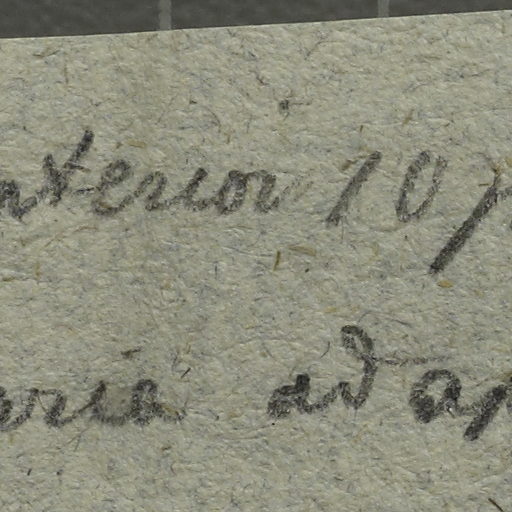 nterior 10 p
aria ad ap